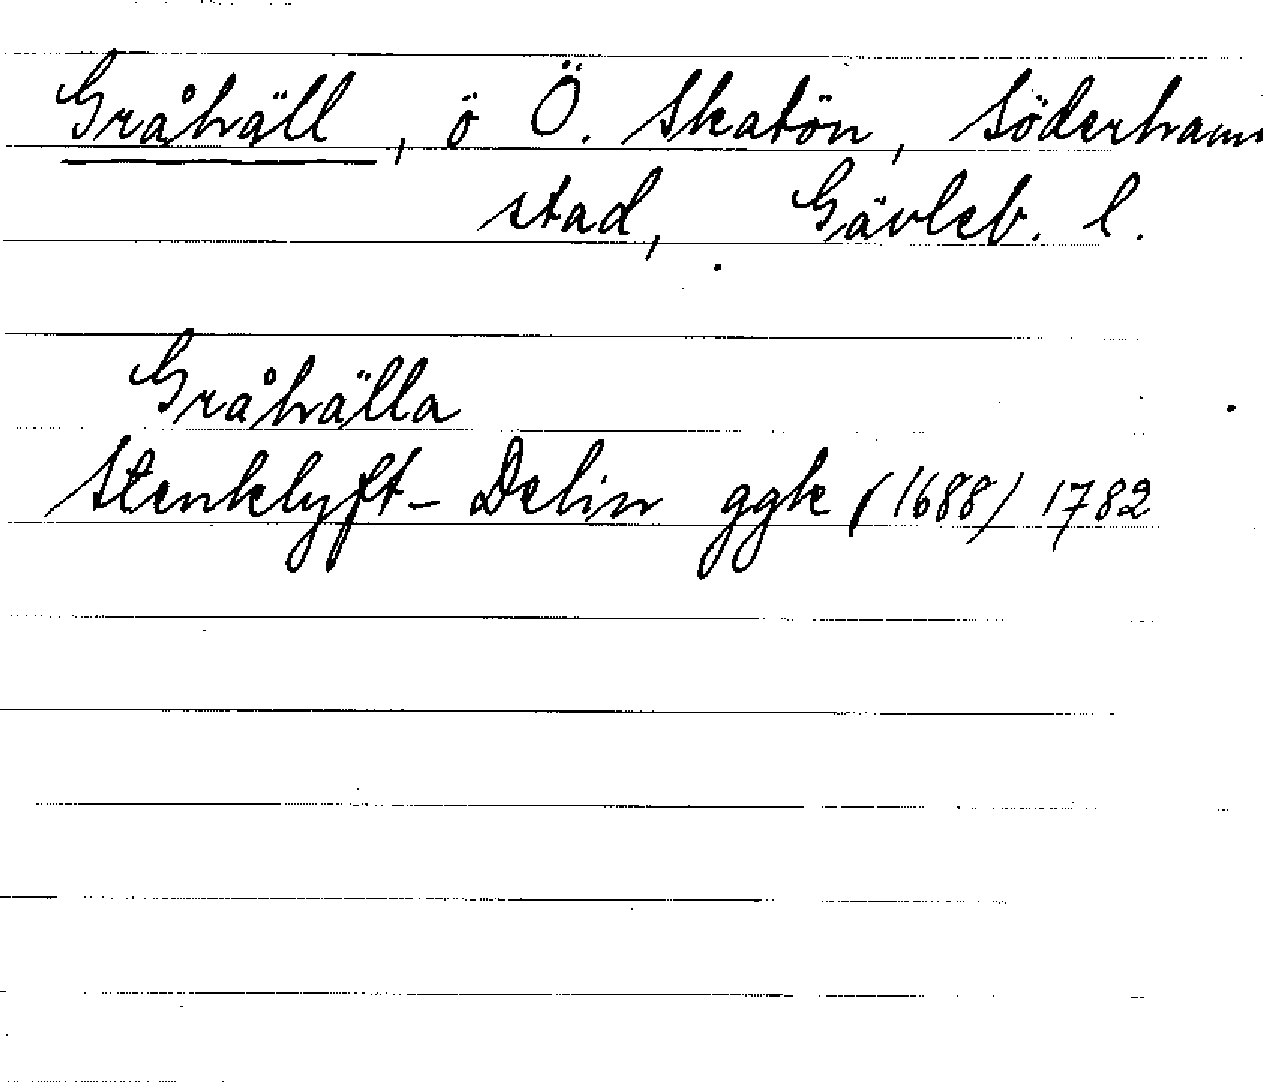 Gråhäll, ö Ö. Skatön, Söderhamn
stad, Gävleb. l.
Gråhälla
Stenklyft-Delin ggk (1688) 1782